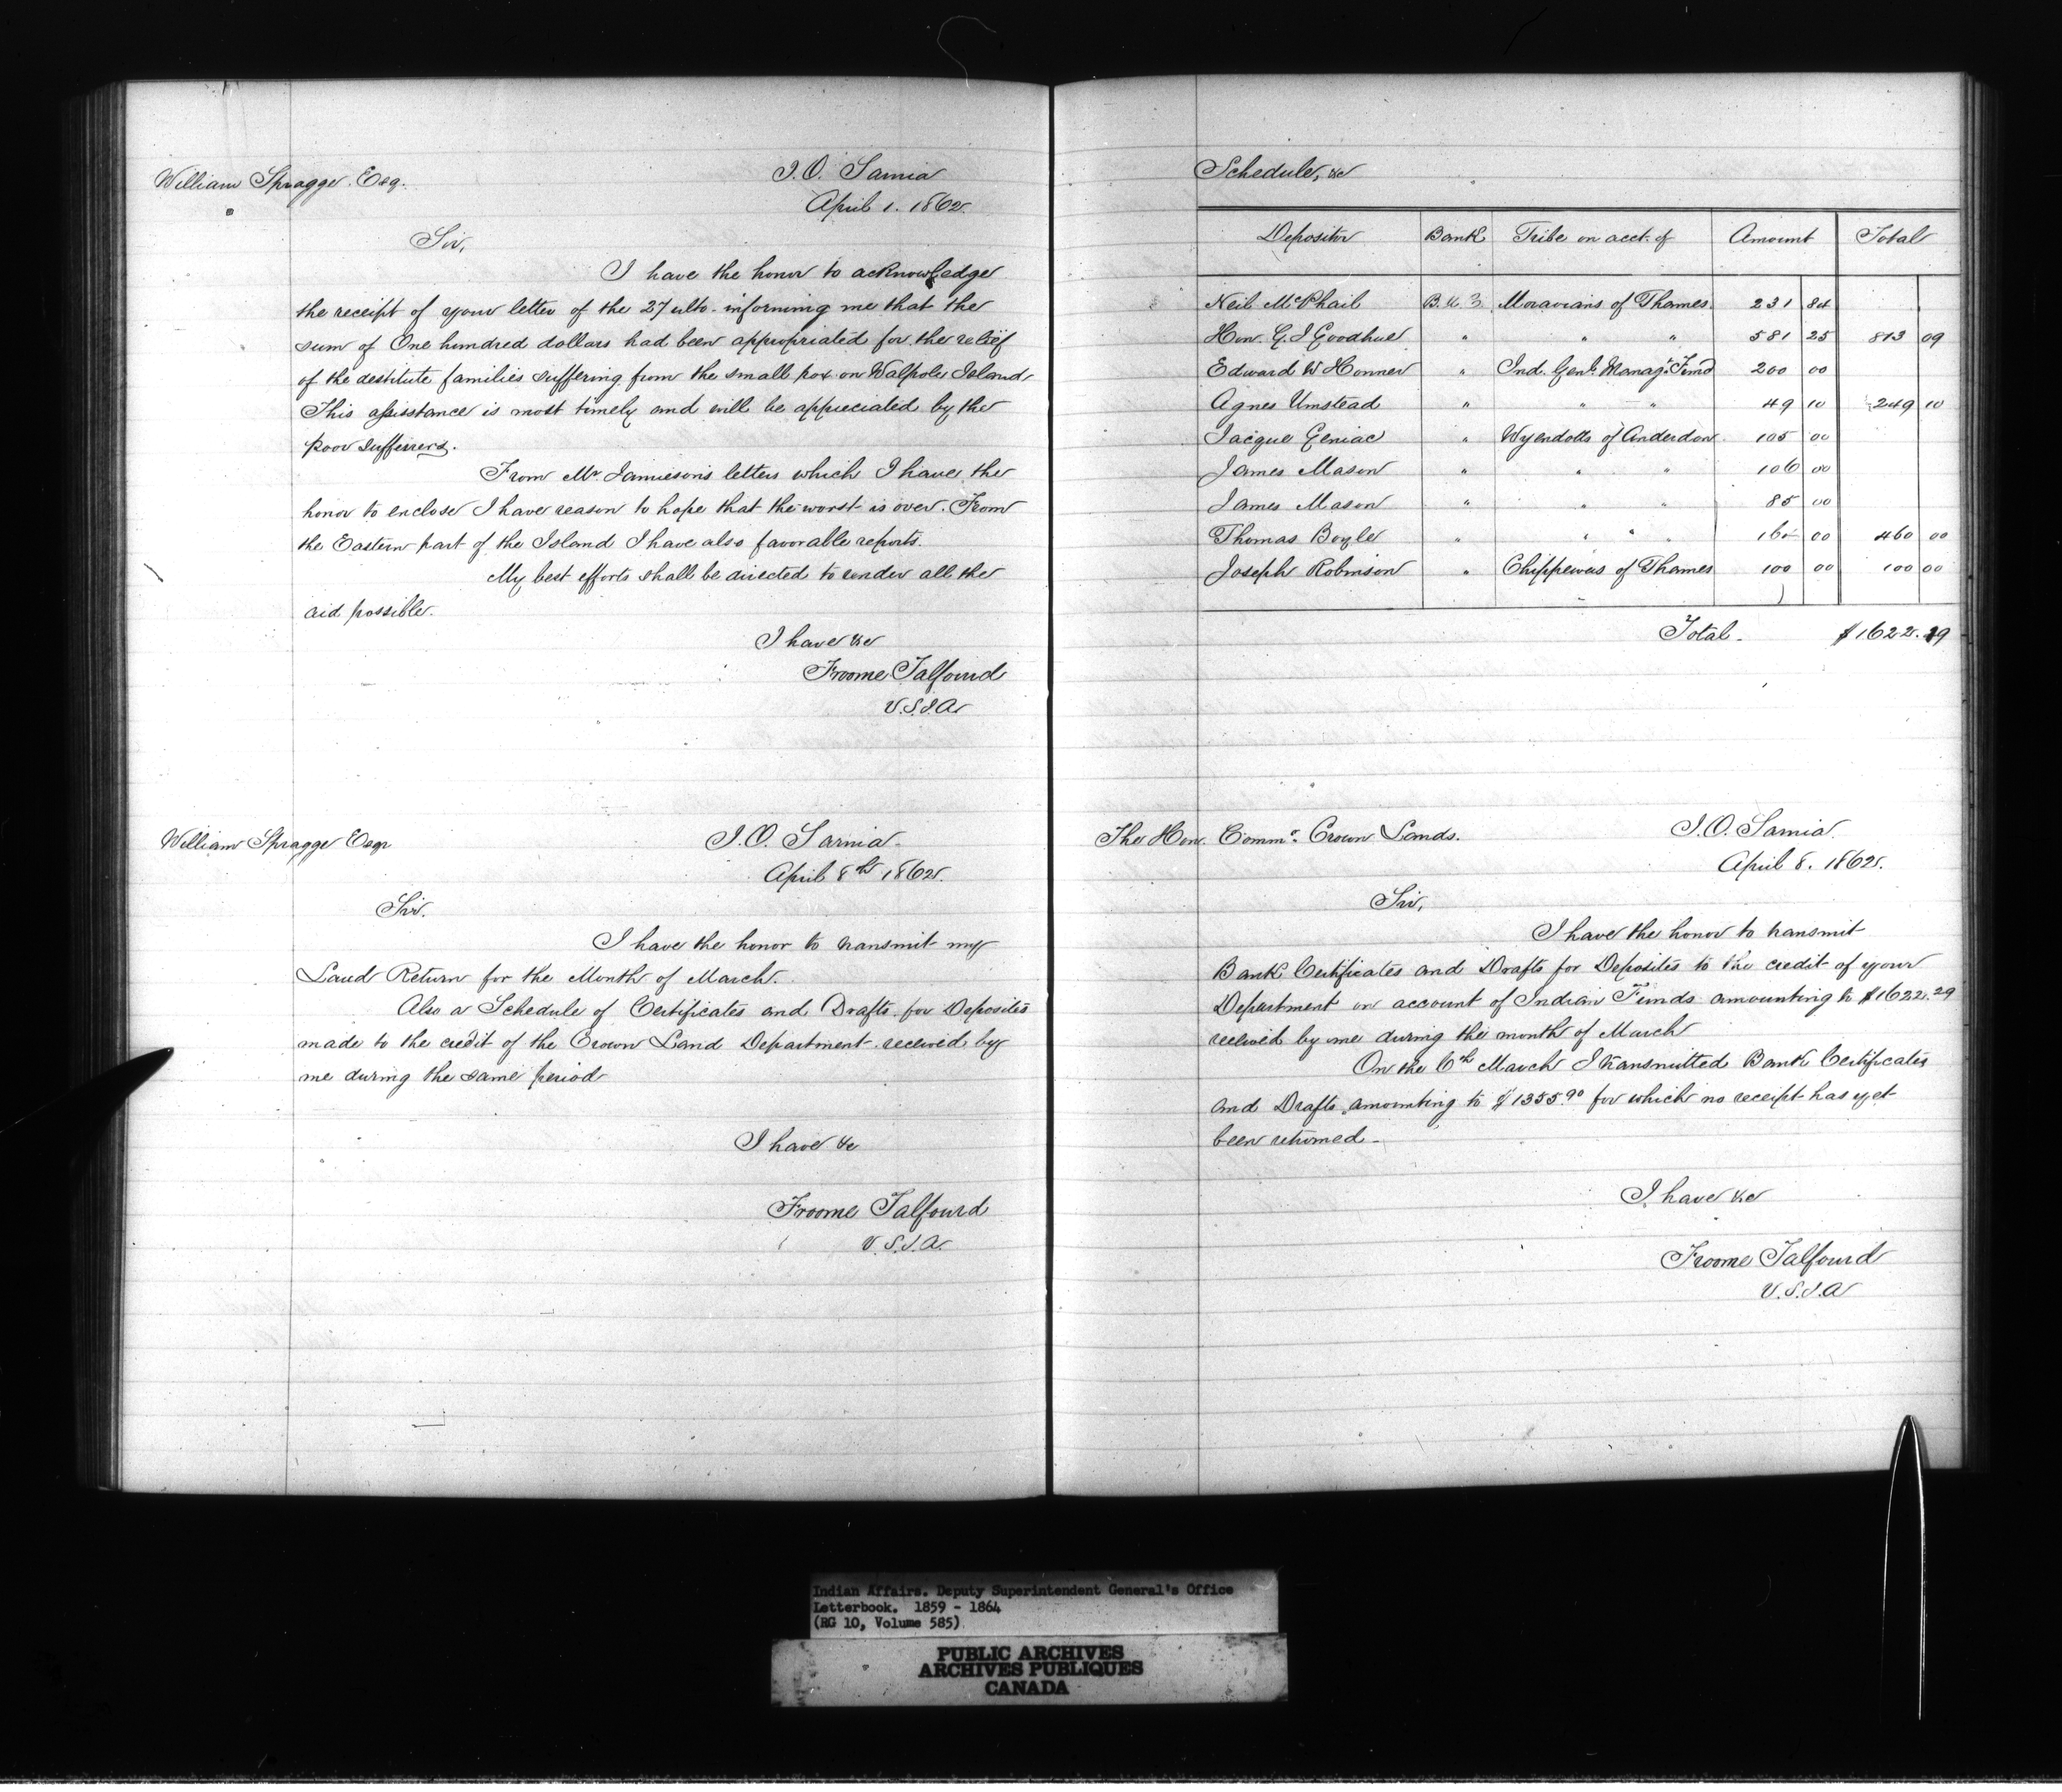 William Spragge Esq.
I.O. Sarnia
April 1. 1862.
Sir,
I have the honor to acknowledge
the receipt of your letter of the 27 ulto. informing me that the
sum of One hundred dollars had been appropriated for the relief
of the destitute families suffering from the small pox on Walpole Island.
This assistance is most timely and will be appreciated by the
poor sufferers.
From Mr Jamieson's letters which I have the
honor to enclose I have reason to hope that the worst is over. From
the Eastern part of the Island I have also favorable reports.
My best efforts shall be directed to render all the
aid possible.
I have &c
Froome Talfourd
V.S.I.A.
William Spragge Esqr
I.O. Sarnia.
April 8th 1862.
Sir.
I have the honor to transmit my
Land Return for the Month of March.
Also a Schedule of Certificates and Drafts for Deposites
made to the credit of the Crown Land Department received by
me during the same period
I have &c
Froome Talfourd
V.S.I.A.
Schedule, &c
Depositor Bank Tribe on acct. of Amount Total
Neil McPhail B.U.C. Moravians of Thames 231 84
Hon. G.J Goodhue " " " 581 25 813 09
Edward W Honner " Ind. Genl. Manag't Fund 200 00
Agnes Umstead " " " 49 10 249 10
Jacque Geniac " Wyendotts of Anderdon 105 00
James Mason " " " 106 00
James Mason " " " 85 00
Thomas Boyle " " " " 00 460 00
Joseph Robinson " Chippewas of Thames 100 00 100 00
Total. $1622.19
The Hon. Commr. Crown Lands.
I.O. Sarnia.
April 8. 1862.
Sir,
I have the honor to transmit
Bank Certificates and Drafts for Deposites to the credit of your
Department on account of Indian Funds amounting to $1622.29
received by me during the month of March
On the 6th March I transmitted Bank Certificates
and Drafts amounting to $1355.90 for which no receipt has yet
been returned.
I have &c
Froome Talfourd
V.S.I.A
Indian Affairs. Deputy Superintendent General's Office
Letterbook. 1859 - 1864
(RG 10, Volume 585)
PUBLIC ARCHIVES
ARCHIVES PUBLIQUES
CANADA